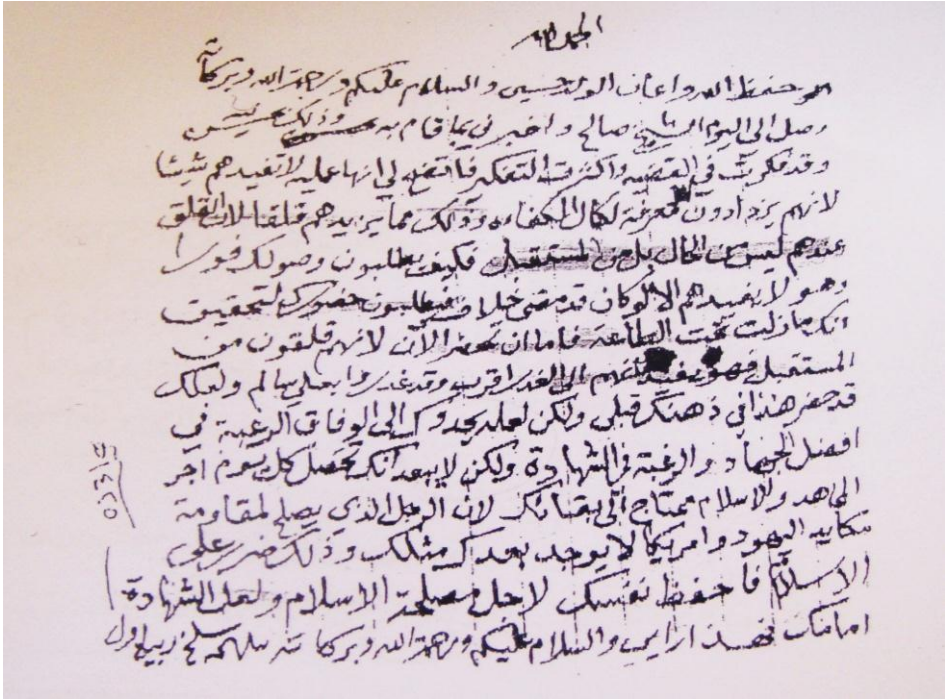 الحمد لله
حفظ الله واعان الولد حسين والسلام عليكم ورحمة الله وبركاته
وصل الي اليوم الشيخ صالح واخبرني بما قام به وذلك
وقد فكرت في القضيه واكثرت التفكر فاتضح لي انها عمليه لا تفيدهم شيئا
لانهم يزدادون معرفة لكمال المكفاءه وذلك مما يزيدهم قلقا لان القلق
عندهم ليس من الحال بل من المستقبل فكيف يطلبون وصولك فورا
وهو لا يفيدهم الا لو كان قد مضى خلاف فيطلبون حضورك لتحقيق
انك ما زلت تحت الطاعة فاما ان تحضر الآن لانهم قلقون من
المستقبل فهو الى الغدر اقرب وقد غدروا بعلي سالم ولعلك
قد حضر هذا في ذهنك قبلي ولكن لعله يحدوك الى الوفاق الرغبة في
افضل الجهاد والرغبة في الشهادة ولكن لا يبعد انك تحصل كل يوم اجر
المجاهد وللاسلام محتاج الى بقائك لان الرجل الذي يصلح لمقاومة
مكايد اليهود وامريكا لا يوجد بعدك مثلك وذلك ضرر على
الاسلام فاحفظ نفسك لاجل مصلحة الاسلام ولعل الشهادة
امامك فهذا رايي والسلام عليكم ورحمة الله وبركاته سلخ ربيع اول